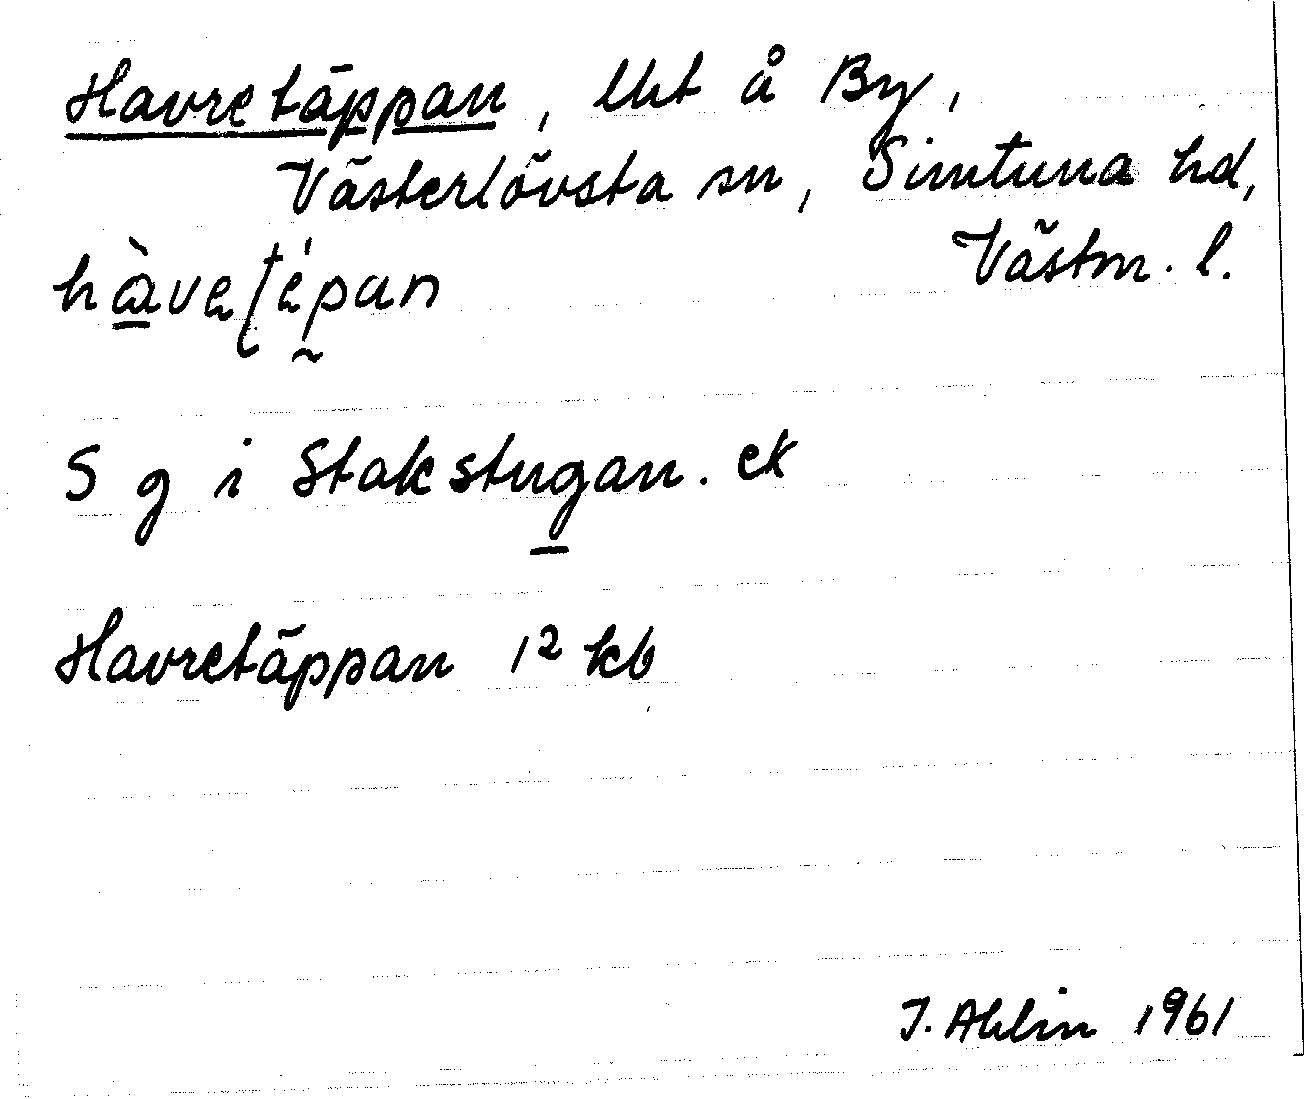 Havretäppan, Urt å By,
Västerlövsta sn, Simtuna hd,
Västm. l.
S g i Stakstugan. ek
Havretäppan 12 kb
J. Ahlin 1961